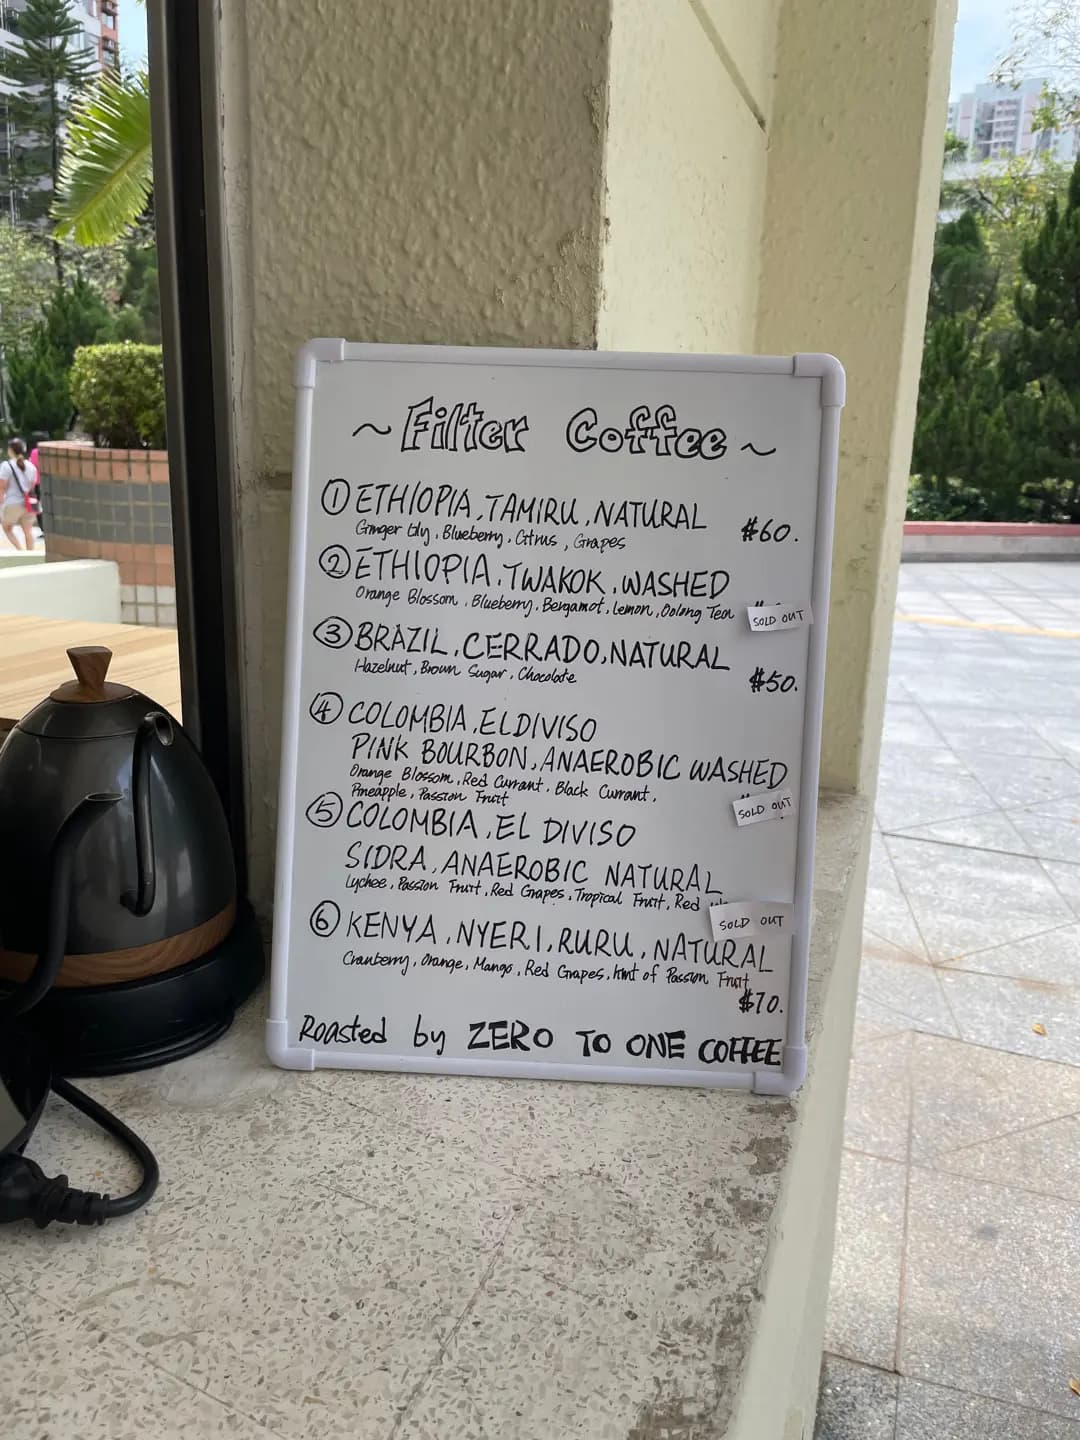 ~ Filter Coffee ~
① ETHIOPIA, TAMIRU, NATURAL
Ginger Lily, Blueberry, Citrus, Grapes
$60.
② ETHIOPIA, TWAKOK, WASHED
Orange Blossom, Blueberry, Bergamot, Lemon, Oolong Tea
SOLD OUT
③ BRAZIL, CERRADO, NATURAL
Hazelnut, Brown Sugar, Chocolate
$50.
④ COLOMBIA, ELDIVISO
PINK BOURBON, ANAEROBIC WASHED
Orange Blossom, Red Currant, Black Currant,
Pineapple, Passion Fruit
SOLD OUT
⑤ COLOMBIA, EL DIVISO
SIDRA, ANAEROBIC NATURAL
Lychee, Passion Fruit, Red Grapes, Tropical Fruit, Red
SOLD OUT
⑥ KENYA, NYERI, RURU, NATURAL
Cranberry, Orange, Mango, Red Grapes, hint of Passion Fruit
$70.
Roasted by ZERO TO ONE COFFEE